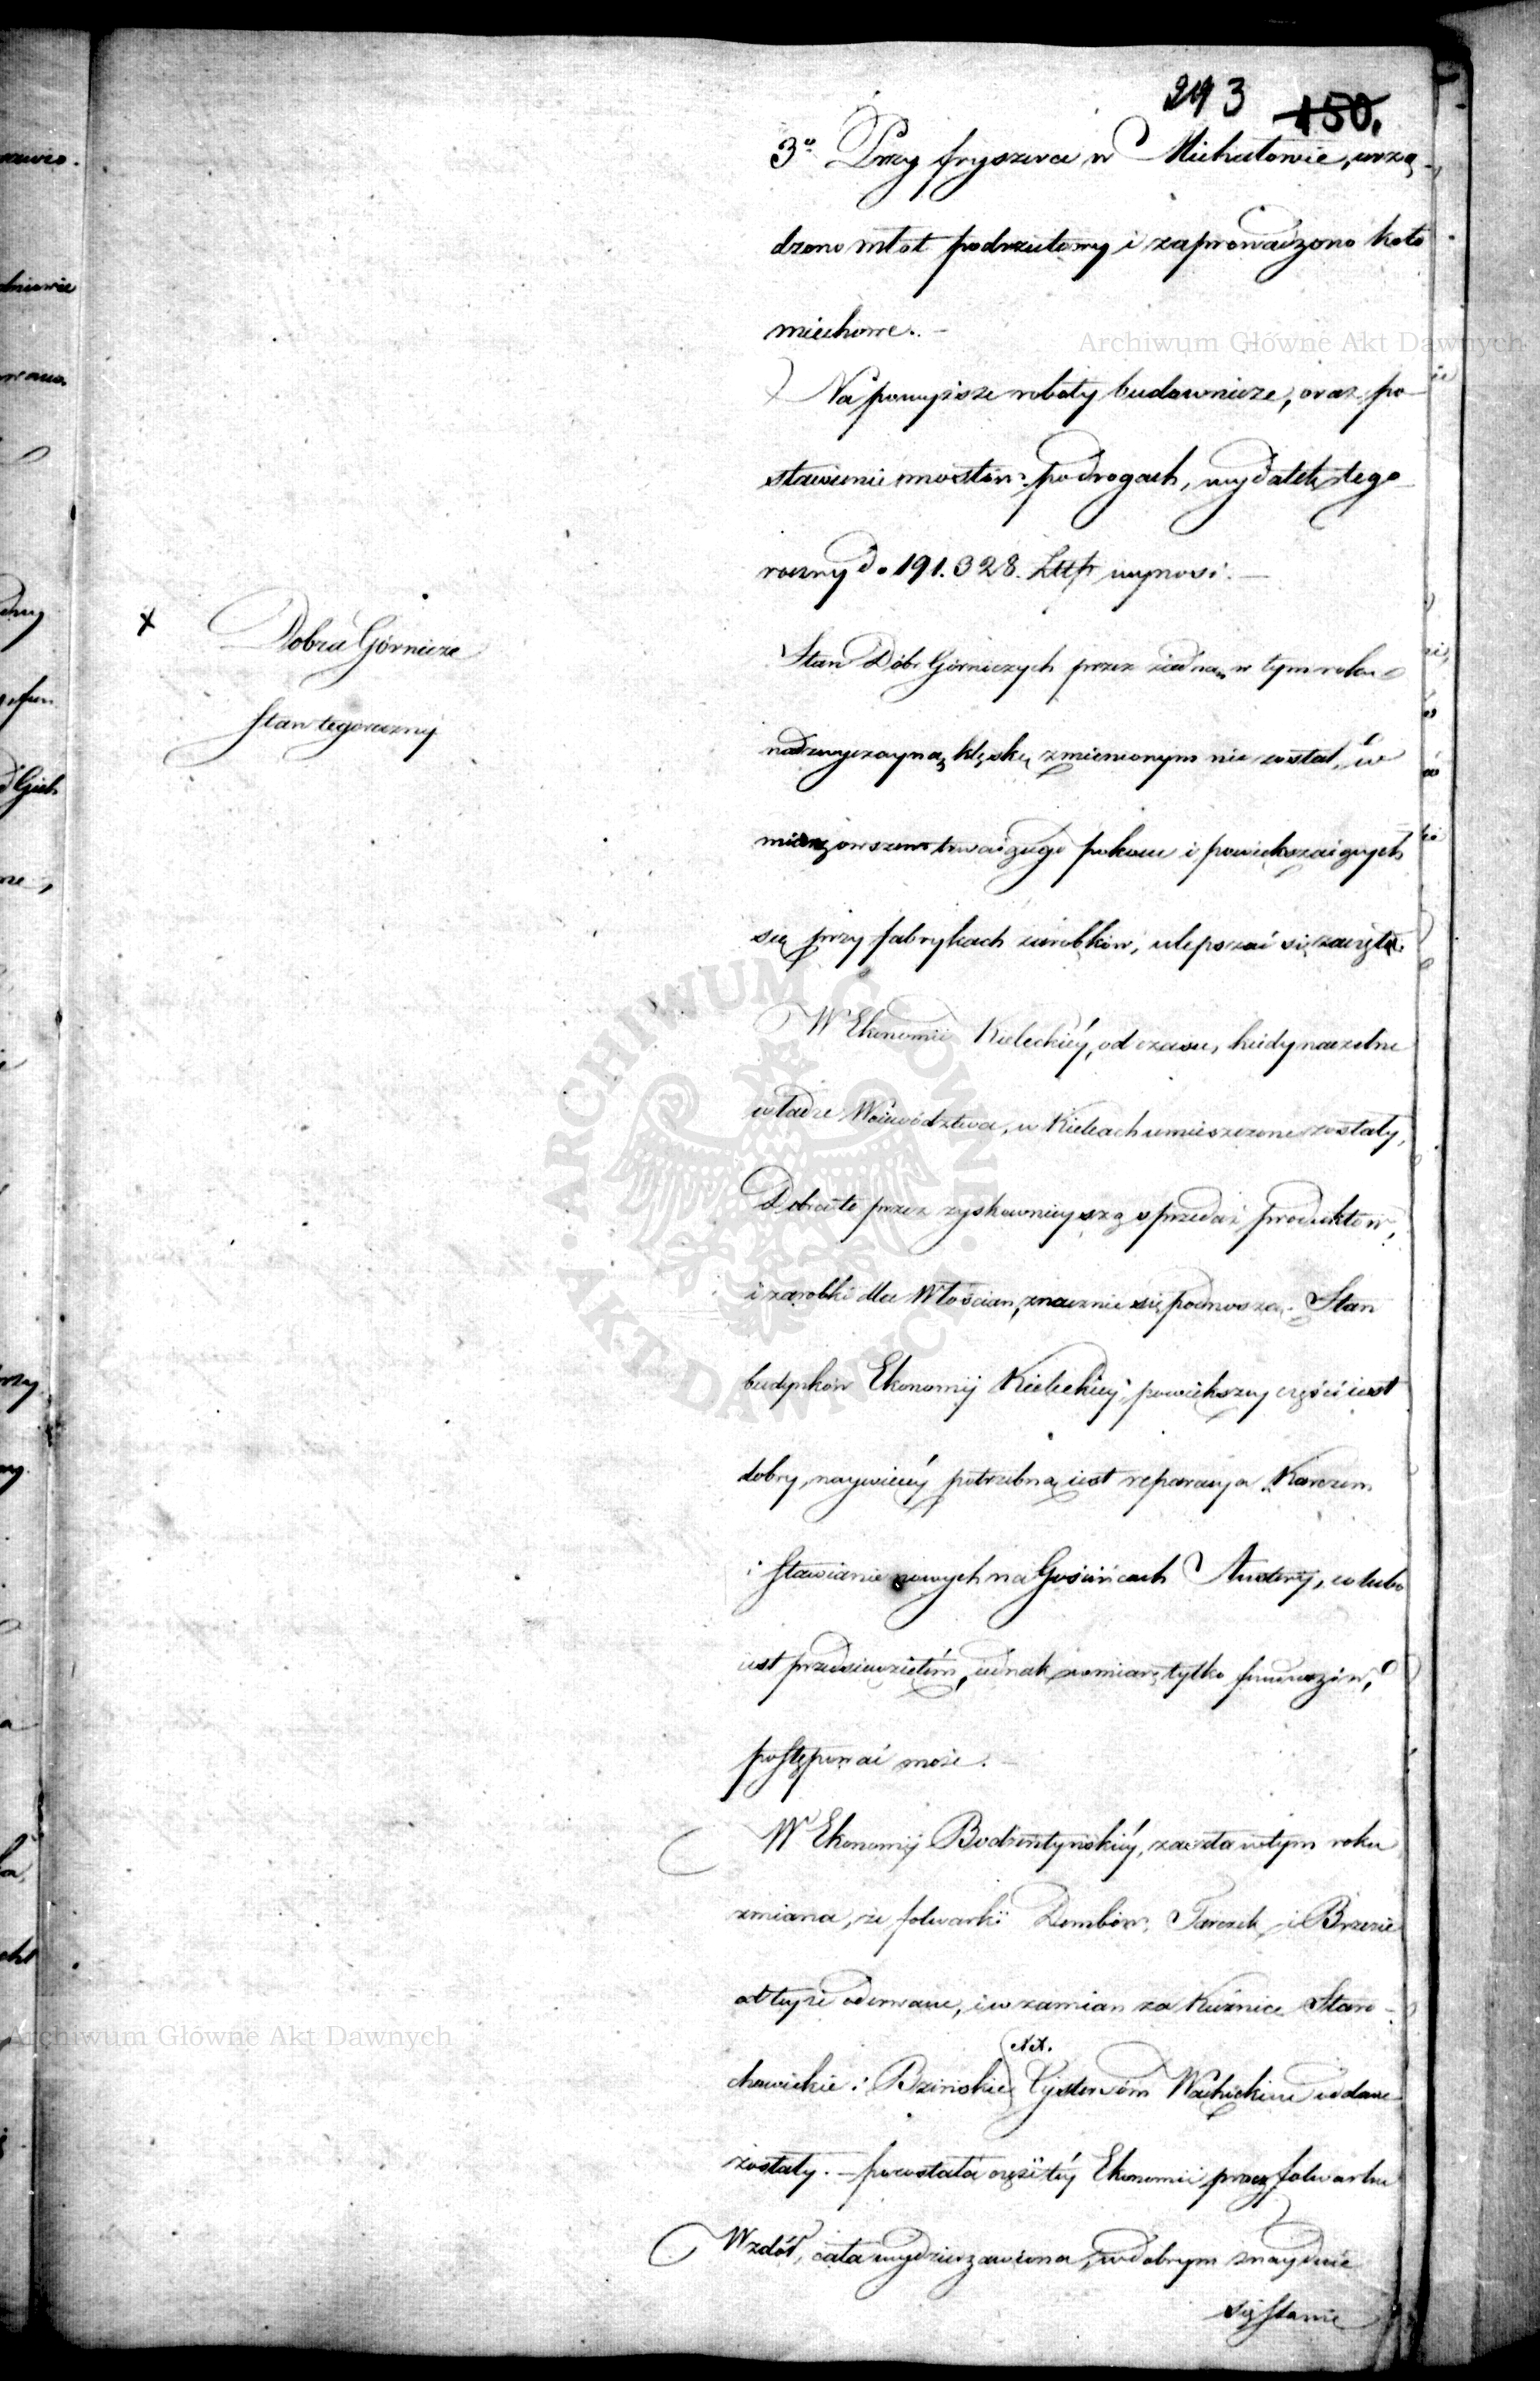 293 150.
3º Przy fryszerce w Michałowie, urzą-
dzono młot podrzutowy i zaprowadzono koło
miechowe. -
Na powyższe roboty budownicze, oraz po-
stawienie mostów po drogach, wydatek tego
roczny do 191.328. Złłp wynosi. -
X Dobra Górnicze
Stan tegoroczny
Stan Dóbr Górniczych przez żadną w tym roku
nadzwyczayną klęskę zmienionym nie został, i w
miarę trwaiącego pokoiu i powiększaiących
się przy fabrykach zarobków, ulepszać się zaczęło.
W Ekonomii Kieleckiéy, od czasu, kiedy naczelne
władze Woiewództwa, w Kielcach umieszczone zostały,
Dobra te przez zyskownieyszą sprzedaż produktów,
i zarobki dla Włościan, znacznie się podnoszą. Stan
budynków Ekonomij Kieleckiéy, powiększey części iest
dobry, naywięcéy potrzebną iest reparacya Karczem
i stawianie nowych na Gościńcach Austery, co lubo
iest przedsięwziętém, iednak w miarę tylko funduszów,
postępować może. -
W Ekonomij Bodzentyńskiéy, zaszła w tym roku
zmiana, że folwarki Dembów, Tarczek i Brzezie
od teyże oderwane, i w zamian za Kuźnice Staro-
chowickie i Bzińskie XX. Cystersóm Wąchockim oddane
zostały. - pozostała część téy Ekonomii prócz folwarku
Wzdół, cała wydzierzawiona, w dobrym znayduie
się stanie
Archiwum Główne Akt Dawnych
Archiwum Główne Akt Dawnych
ARCHIWUM GŁÓWNE • AKT DAWNYCH •